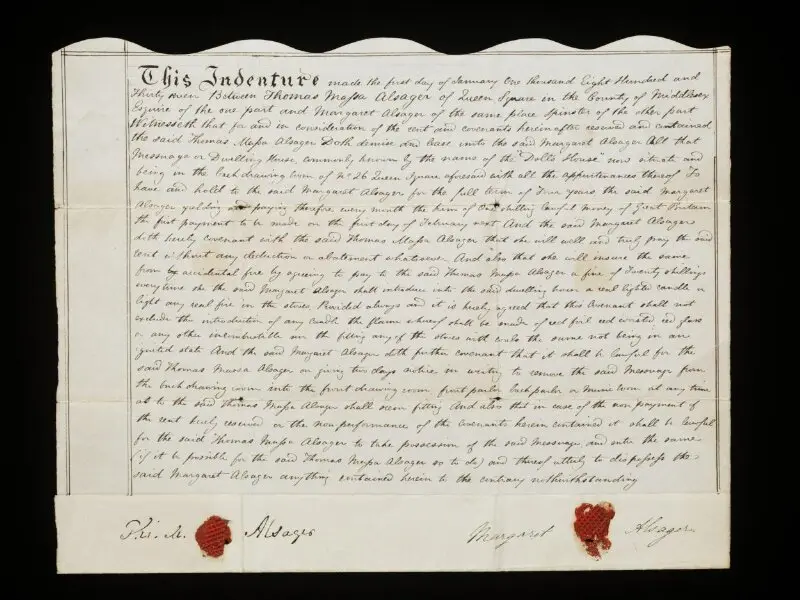 This Indenture made the first day of January One thousand Eight Hundred and
Thirty seven Between Thomas Maſsa Alsager of Queen Square in the County of Middlesex
Esquire of the one part and Margaret Alsager of the same place Spinster of the other part
Witnesseth that for and in consideration of the rent and covenants hereinafter reserved and contained
the said Thomas Maſsa Alsager Doth demise and lease unto the said Margaret Alsager All that
Messuage or Dwelling House, commonly known by the name of the Dolls House now situate and
being in the back drawing room of No 26 Queen Square aforesaid with all the appurtenances thereof To
have and hold to the said Margaret Alsager for the full term of Four years the said Margaret
Alsager yielding and paying therefore every month the Sum of One shilling lawful money of Great Britain
the first payment to be made on the first day of February next And the said Margaret Alsager
doth hereby covenant with the said Thomas Maſsa Alsager that she will well and truly pay the said
rent without any deduction or abatement whatsoever And also that she will insure the same
from accidental fire by agreeing to pay to the said Thomas Maſsa Alsager a fine of Twenty shillings
every time she the said Margaret Alsager shall introduce into the said dwelling house a real lighted candle or
light any real fire in the stoves Provided always and it is hereby agreed that this Covenant shall not
exclude the introduction of any candle the flame whereof shall be made of red foil red worsted red glass
or any other incombustible nor the filling any of the stoves with coals the same not being in an
ignited state And the said Margaret Alsager doth further covenant that it shall be lawful for the
said Thomas Massa Alsager on giving two days notice in writing to remove the said Messuage from
the back drawing room into the front drawing room front parlor back parlor or Music room at any time
as to the said Thomas Maſsa Alsager shall seem fitting And also that in case of the non payment of
the rent hereby reserved or the non performance of the Covenants herein contained it shall be lawful
for the said Thomas Maſsa Alsager to take possession of the said Messuage and enter the same
(if it be possible for the said Thomas Maſsa Alsager so to do) and thereof utterly to dispossess the
said Margaret Alsager anything contained herein to the contrary notwithstanding
Tho. M. Alsager
Margaret Alsager